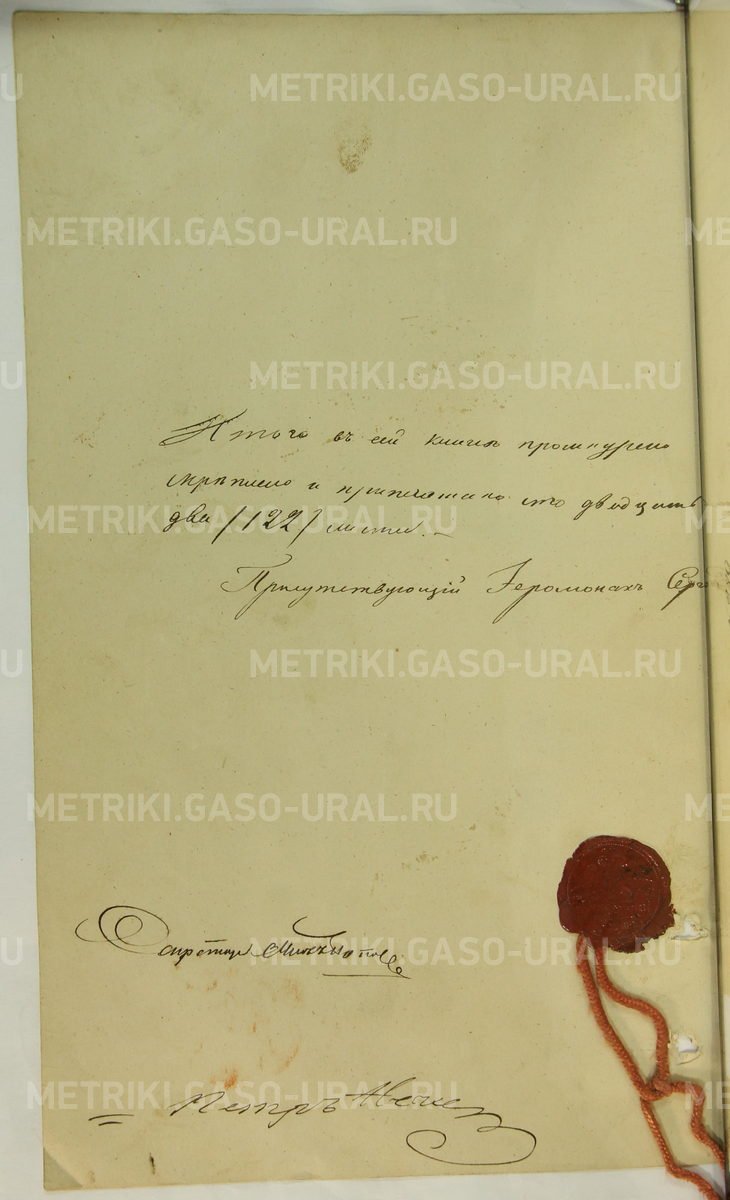 METRIKI.GASO-URAL.RU
METRIKI.GASO-URAL.RU
METRIKI.GASO-URAL.RU
Итого въ сей книгѣ прошнуровано
скрѣплено и припечатано сто двадцать
METRIKI.GASO-URAL.RU
два /122/ листа.–
Присутствующій Іеромонахъ Серг
METRIKI.GASO-URAL.RU
METRIKI.GASO-URAL.RU
Секретарь
METRIKI.GASO-URAL.RU
METRIKI.GASO-URAL.RU
Петръ